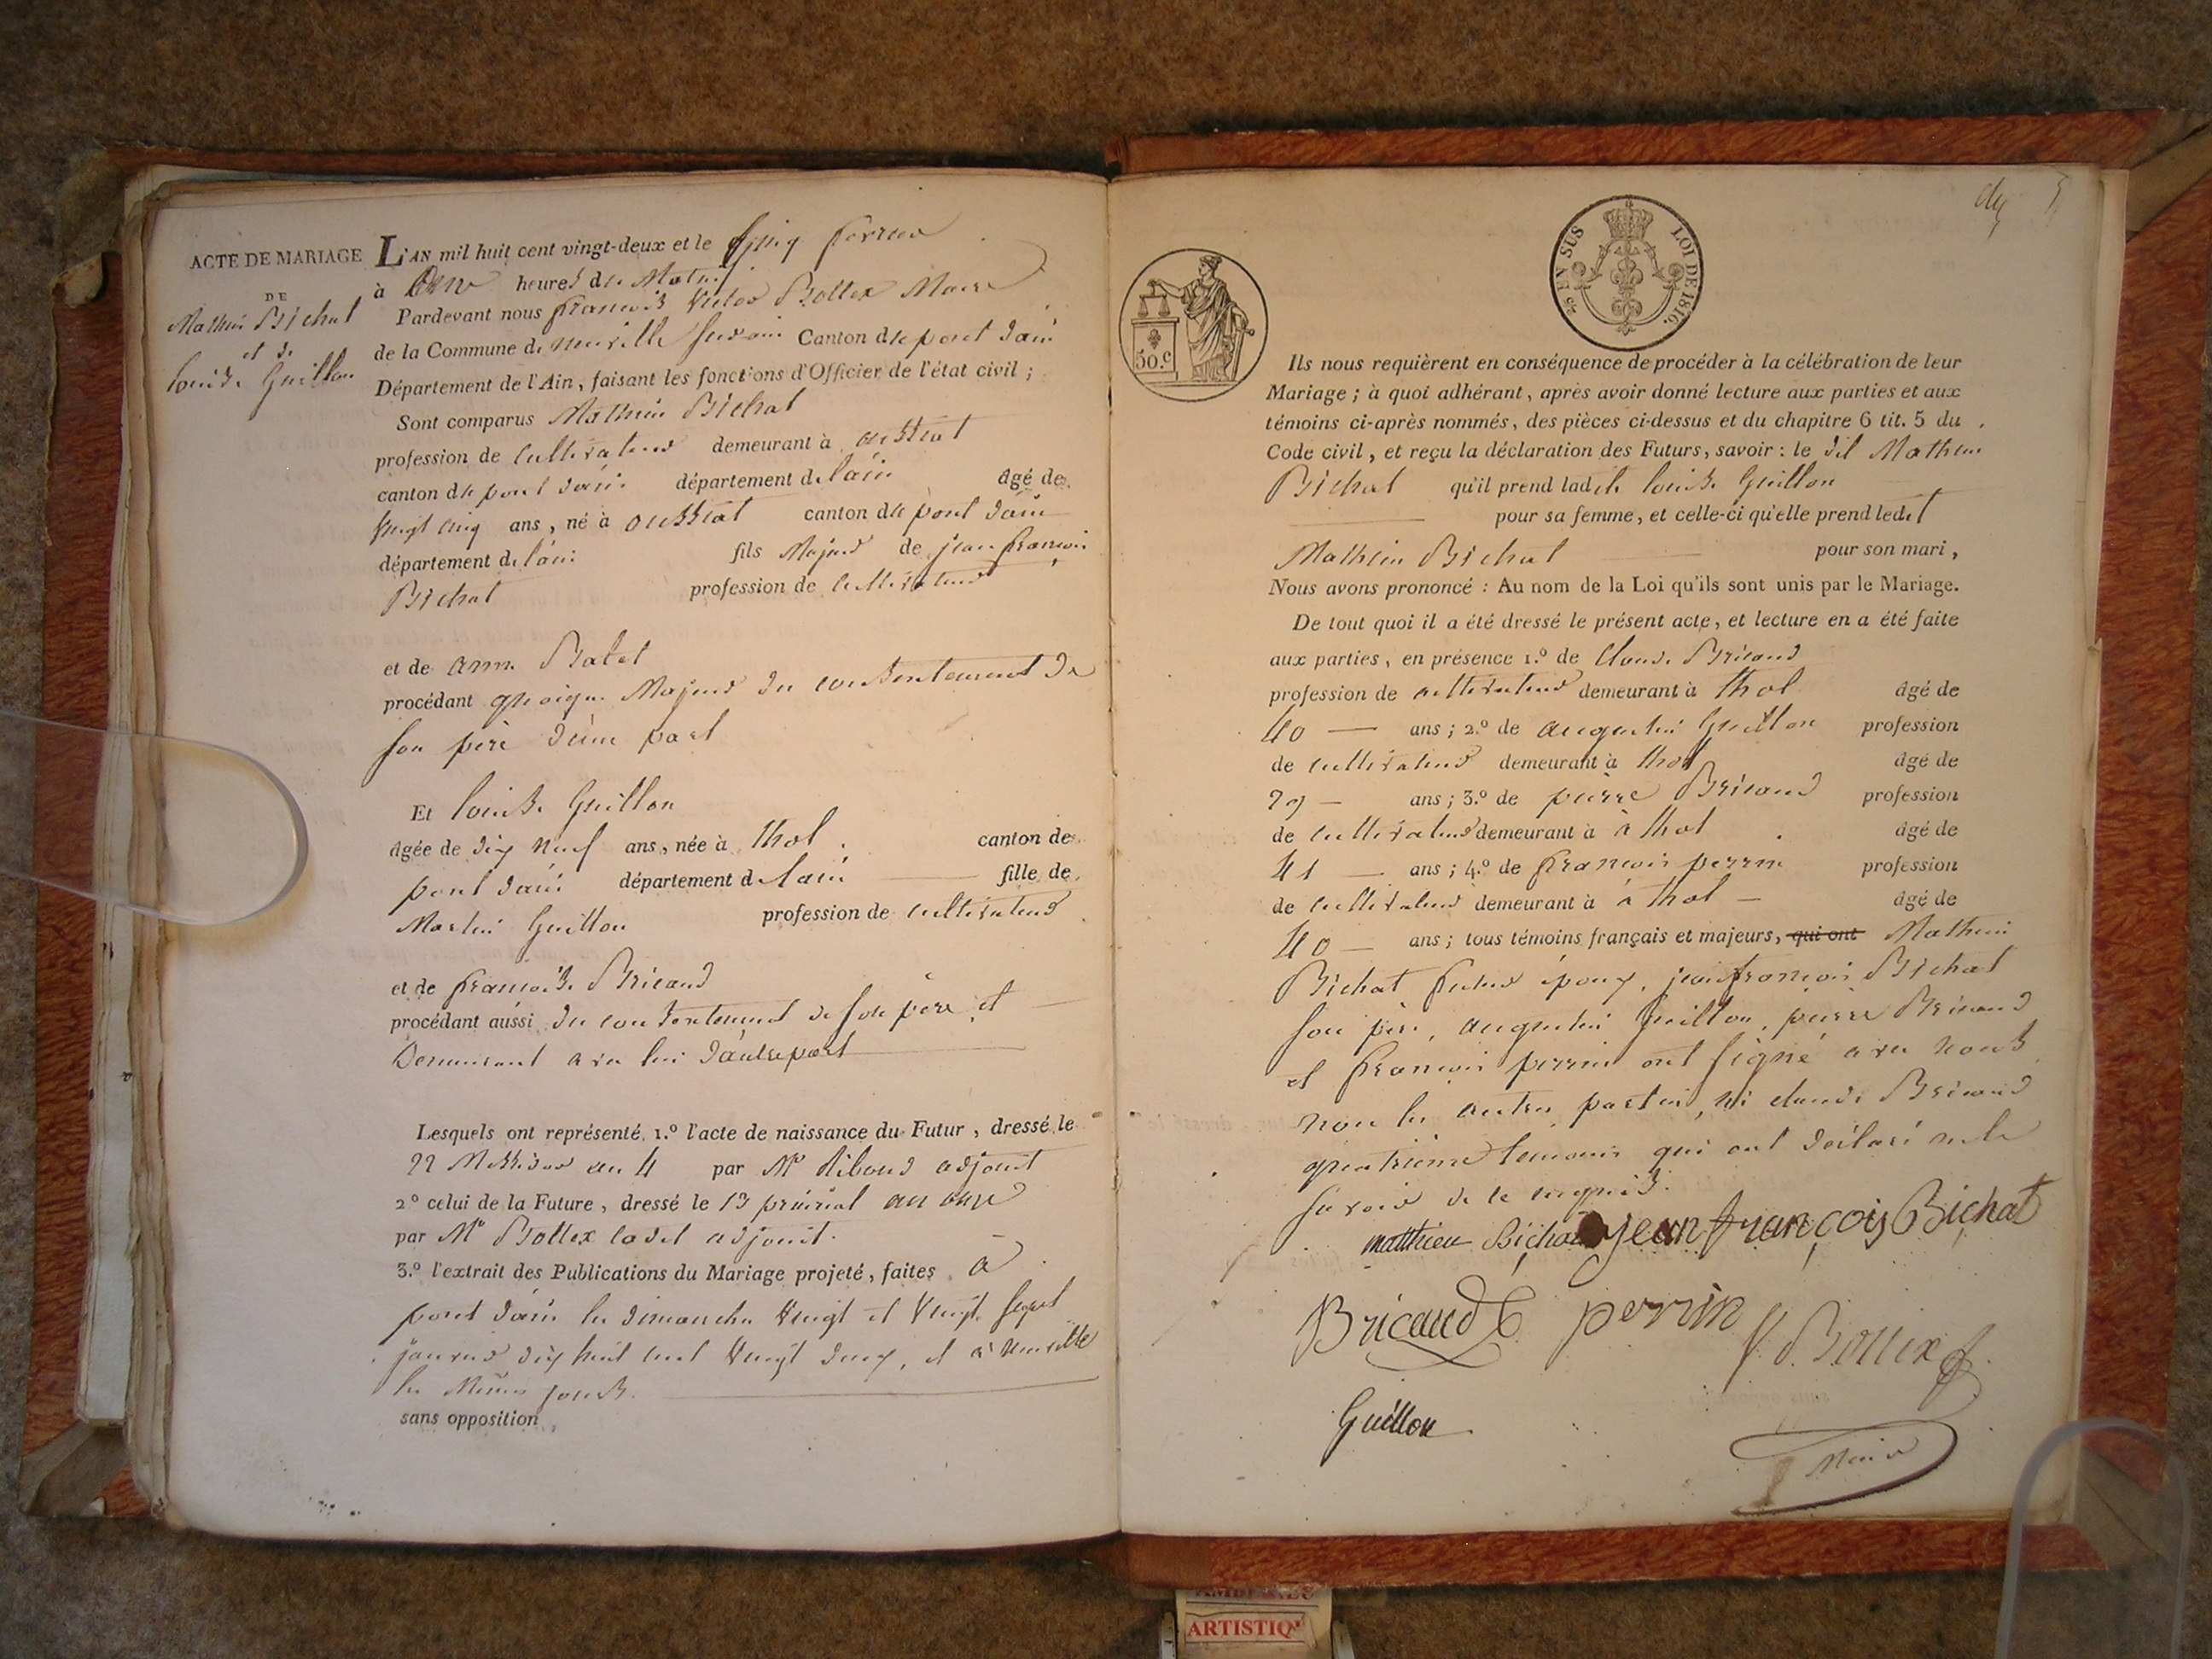 ACTE DE MARIAGE
DE
Mathieu Bichat
et de
louise Guillon
L'AN mil huit cent vingt-deux et le Cinq fevrier
à Onze heures du Matin
Pardevant nous françois Victor Bottex Maire
de la Commune de neuville sur ain Canton de pont dain
Département de l'Ain, faisant les fonctions d'Officier de l'état civil ;
Sont comparus Mathieu Bichat
profession de Cultivateur demeurant à oussiat
canton de pont dain département de lain âgé de
vingt cinq ans, né à oussiat canton de pont dain
département de lain fils Majeur de jean françois
Bichat profession de Cultivateur
et de anne Batet
procédant quoique Majeur du consentement de
son père d'une part
Et louise Guillon
âgée de dix neuf ans, née à thol canton de
pont dain département de lain fille de
Martin Guillon profession de cultivateur
et de françoise Bricaud
procédant aussi du consentement de son père et
Demeurant avec lui dautrepart
Lesquels ont représenté, 1.º l'acte de naissance du Futur, dressé le
22 Messidor an 4 par Mr Riboud adjoint
2º celui de la Future, dressé le 13 prairial an onze
par Mr Bottex cadet adjoint.
3.º l'extrait des Publications du Mariage projeté, faites à
pont dain les dimanches vingt et vingt sept
janvier dix huit cent vingt deux, et à neuville
les Mêmes jours.
sans opposition
5
50.C
25 EN SUS
LOI DE 1816.
Ils nous requièrent en conséquence de procéder à la célébration de leur
Mariage ; à quoi adhérant, après avoir donné lecture aux parties et aux
témoins ci-après nommés, des pièces ci-dessus et du chapitre 6 tit. 5 du
Code civil, et reçu la déclaration des Futurs, savoir : le dit Mathieu
Bichat qu'il prend ladite louise Guillon
pour sa femme, et celle-ci qu'elle prend ledit
Mathieu Bichat pour son mari,
Nous avons prononcé : Au nom de la Loi qu'ils sont unis par le Mariage.
De tout quoi il a été dressé le présent acte, et lecture en a été faite
aux parties, en présence 1.º de Claude Bricaud
profession de cultivateur demeurant à thol âgé de
40 ans ; 2.º de augustin Guillon profession
de cultivateur demeurant à thol âgé de
27 ans ; 3.º de pierre Bricaud profession
de cultivateur demeurant à à thol âgé de
41 ans ; 4.º de françois perrin profession
de Cultivateur demeurant à à thol âgé de
40 ans ; tous témoins français et majeurs, qui ont Mathieu
Bichat futur époux, jean françois Bichat
son père, augustin Guillon, pierre Bricaud
et françois perrin ont signé avec nous
non les autres parties, ni claude Bricaud
quatrième temoin qui ont déclaré ne le
savoir de ce enquis.
matthieu Bichat jean françois Bichat
Bricaud perrin V. Bottex
Guillon
Maire
ARTISTIQ